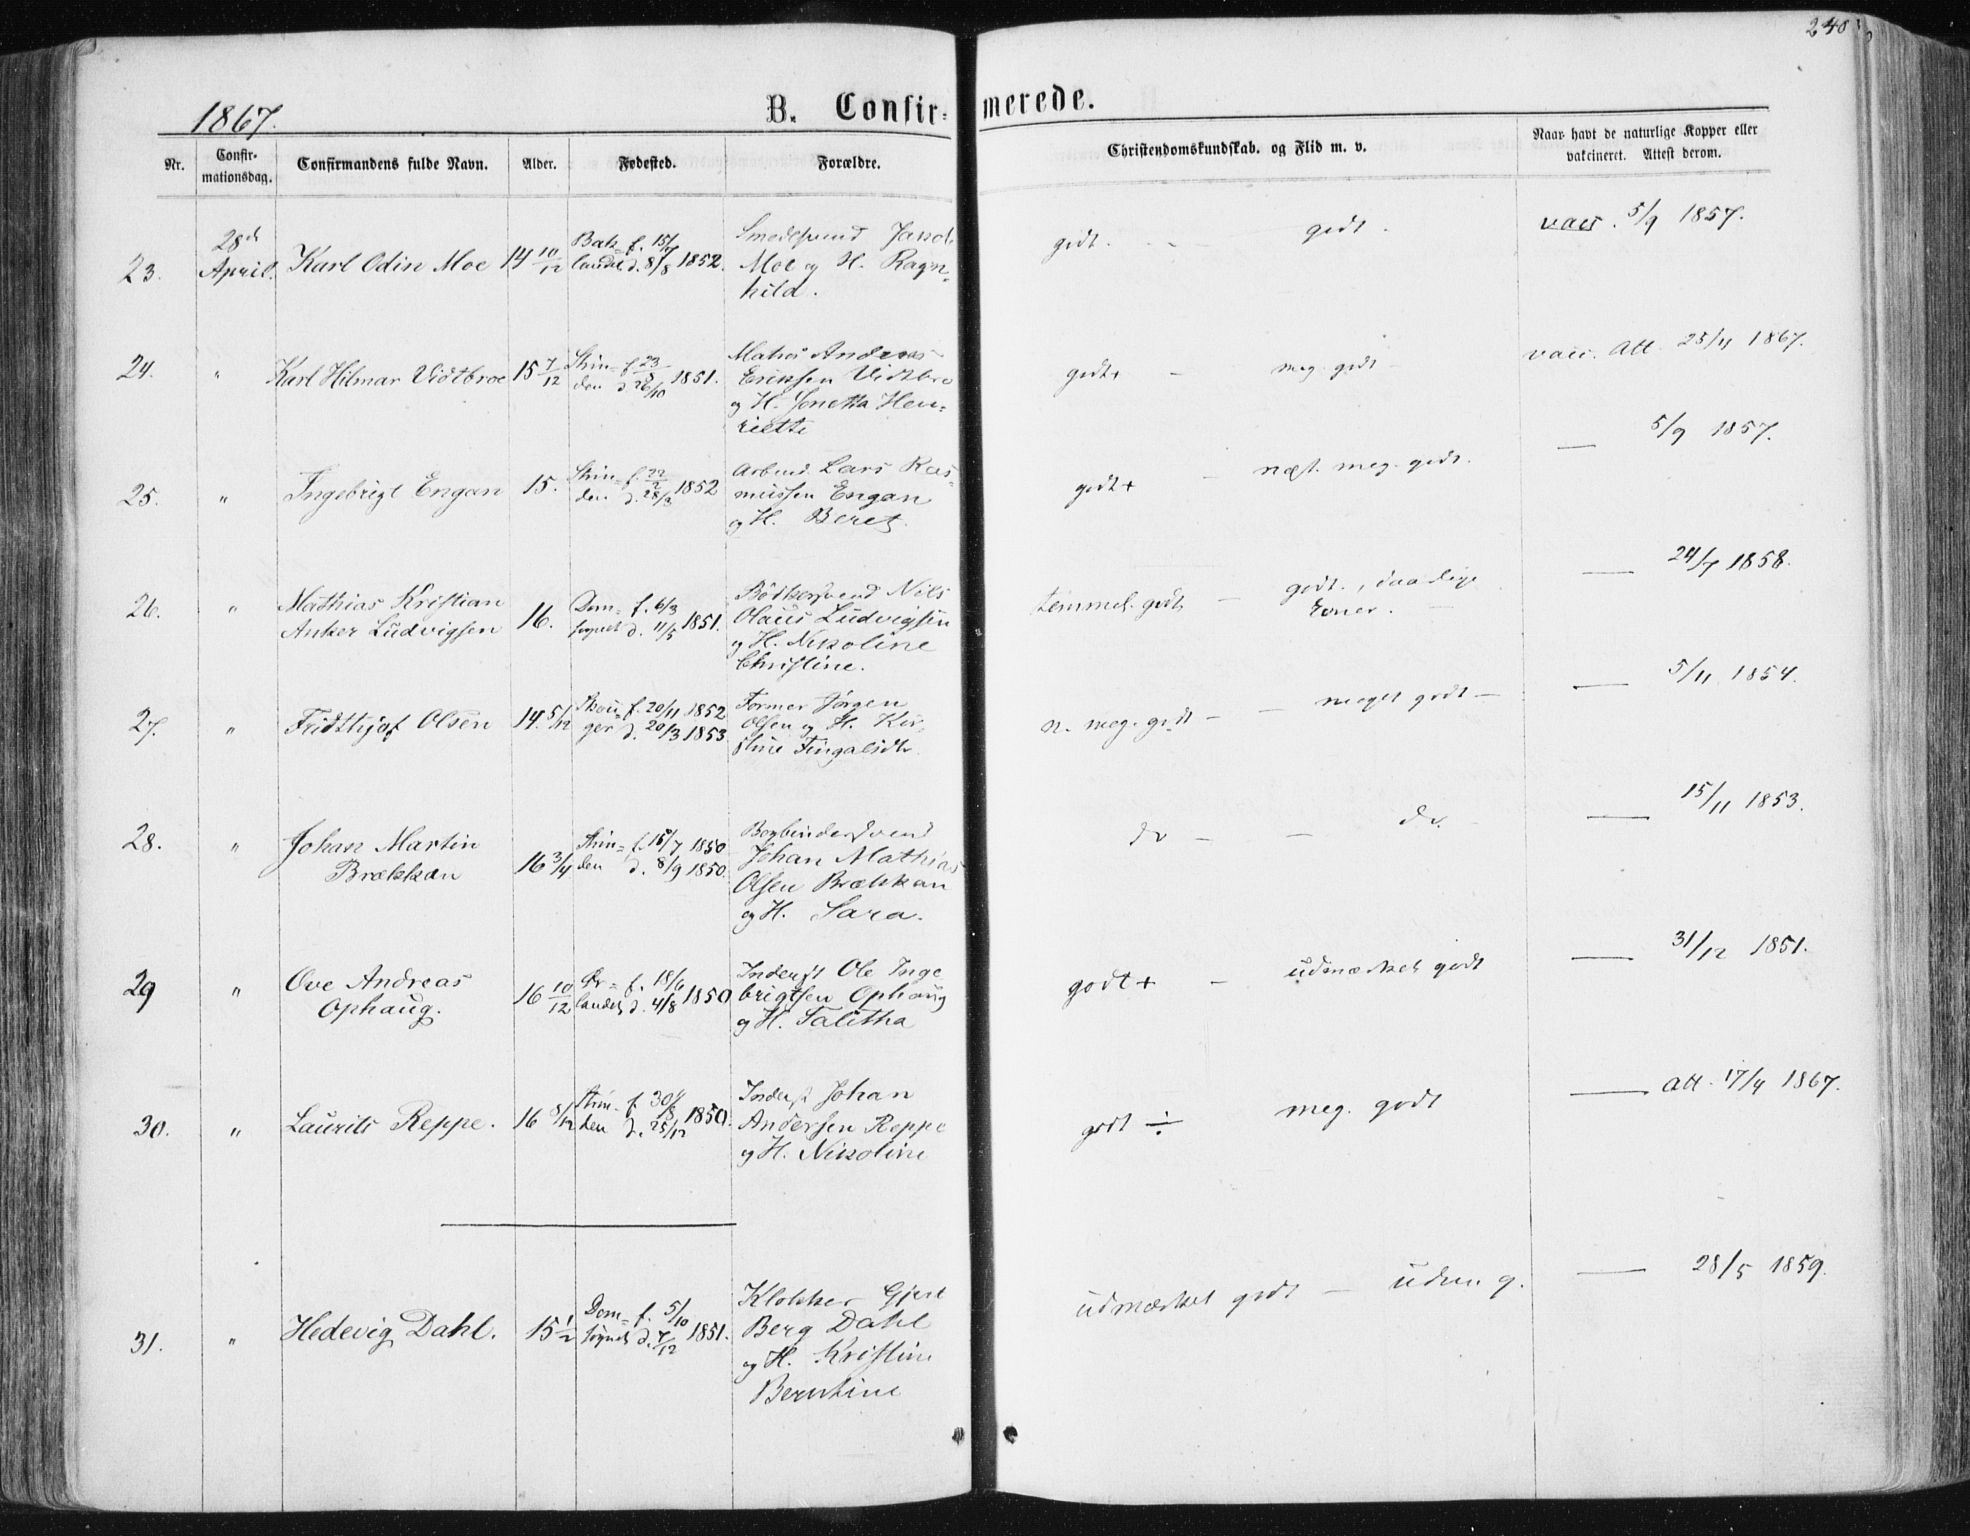 240
1867.
B. Confirmerede.
Nr. Confirmationsdag. Confirmandens fulde Navn. Alder. Fødested. Forældre. Christendomskundskab. og Flid m. v. Naar havt de naturlige Kopper eller vakcineret. Attest derom.
23. 28de April. Karl Odin Moe 14 10/12 Bak= f. 15/7
landet d. 8/8 1852. Smedesvend Jakob
Moe og H. Ragn=
hild.
godt. - godt. vacc. 5/9 1857.
24. " Karl Hilmar Vidtbroe 15 7/12 Strin= f. 23/
den d. 26/10 1851. Andreas
Eriksen Vidtbro
og H. Jonetta Hen=
riette
godt+ - meg. godt - vacc. Att. 23/4 1867.
25. " Ingebrigt Engan 15. Strin= f. 22/2
den d. 28/3 1852 Arbmd. Lars Ras=
mussen Engan
og H. Beret.
godt+ - næst. meg. godt. — 5/9 1857.
26. " Mathias Kristian
Anker Ludvigsen 16. Dom= f. 6/3
sognet d. 11/5 1851. Bødkersvend Nils
Olaus Ludvigsen
og H. Nikoline
Christine.
temmel. godt - godt., daarlige
Evner. — 24/7 1858.
27. " Fridthjof Olsen 14. 5/12 f. 20/11 1852
d. 20/3 1853 Former Jørgen
Olsen og H. Kir
stine Fingalsdtr.
n. meg. godt - - meget godt - — 5/11 1854.
28. " Johan Martin
Brækkan 16 3/4 Strin= f. 15/7 1850
den d. 8/9 1850. Bogbindersvend
Johan Mathias
Olsen Brækkan
og H. Sara.
do - - do. — 15/11 1853.
29 " Ove Andreas
Ophaug. 16 10/12 Ør= f. 18/6
landet d. 4/8 1850 Inderst Ole Inge
brigtsen Ophaug
og H. Talitha
godt + - udmærket godt — 31/12 1851.
30. " Laurits Reppe. 16 8/12 Strin- f. 30/8
den d. 25/12 1850. Inderst Johan
Andersen Reppe
og H. Nikoline
godt ÷ meg. godt — att. 17/4 1867.
31. " Hedevig Dahl. 15 1/2 Dom= f. 5/10
sognet d. 7/12 1851. Klokker Gjert
Berg Dahl
og H. Kristine
Berntine
udmærket godt - udm. g. — 28/5 1859.